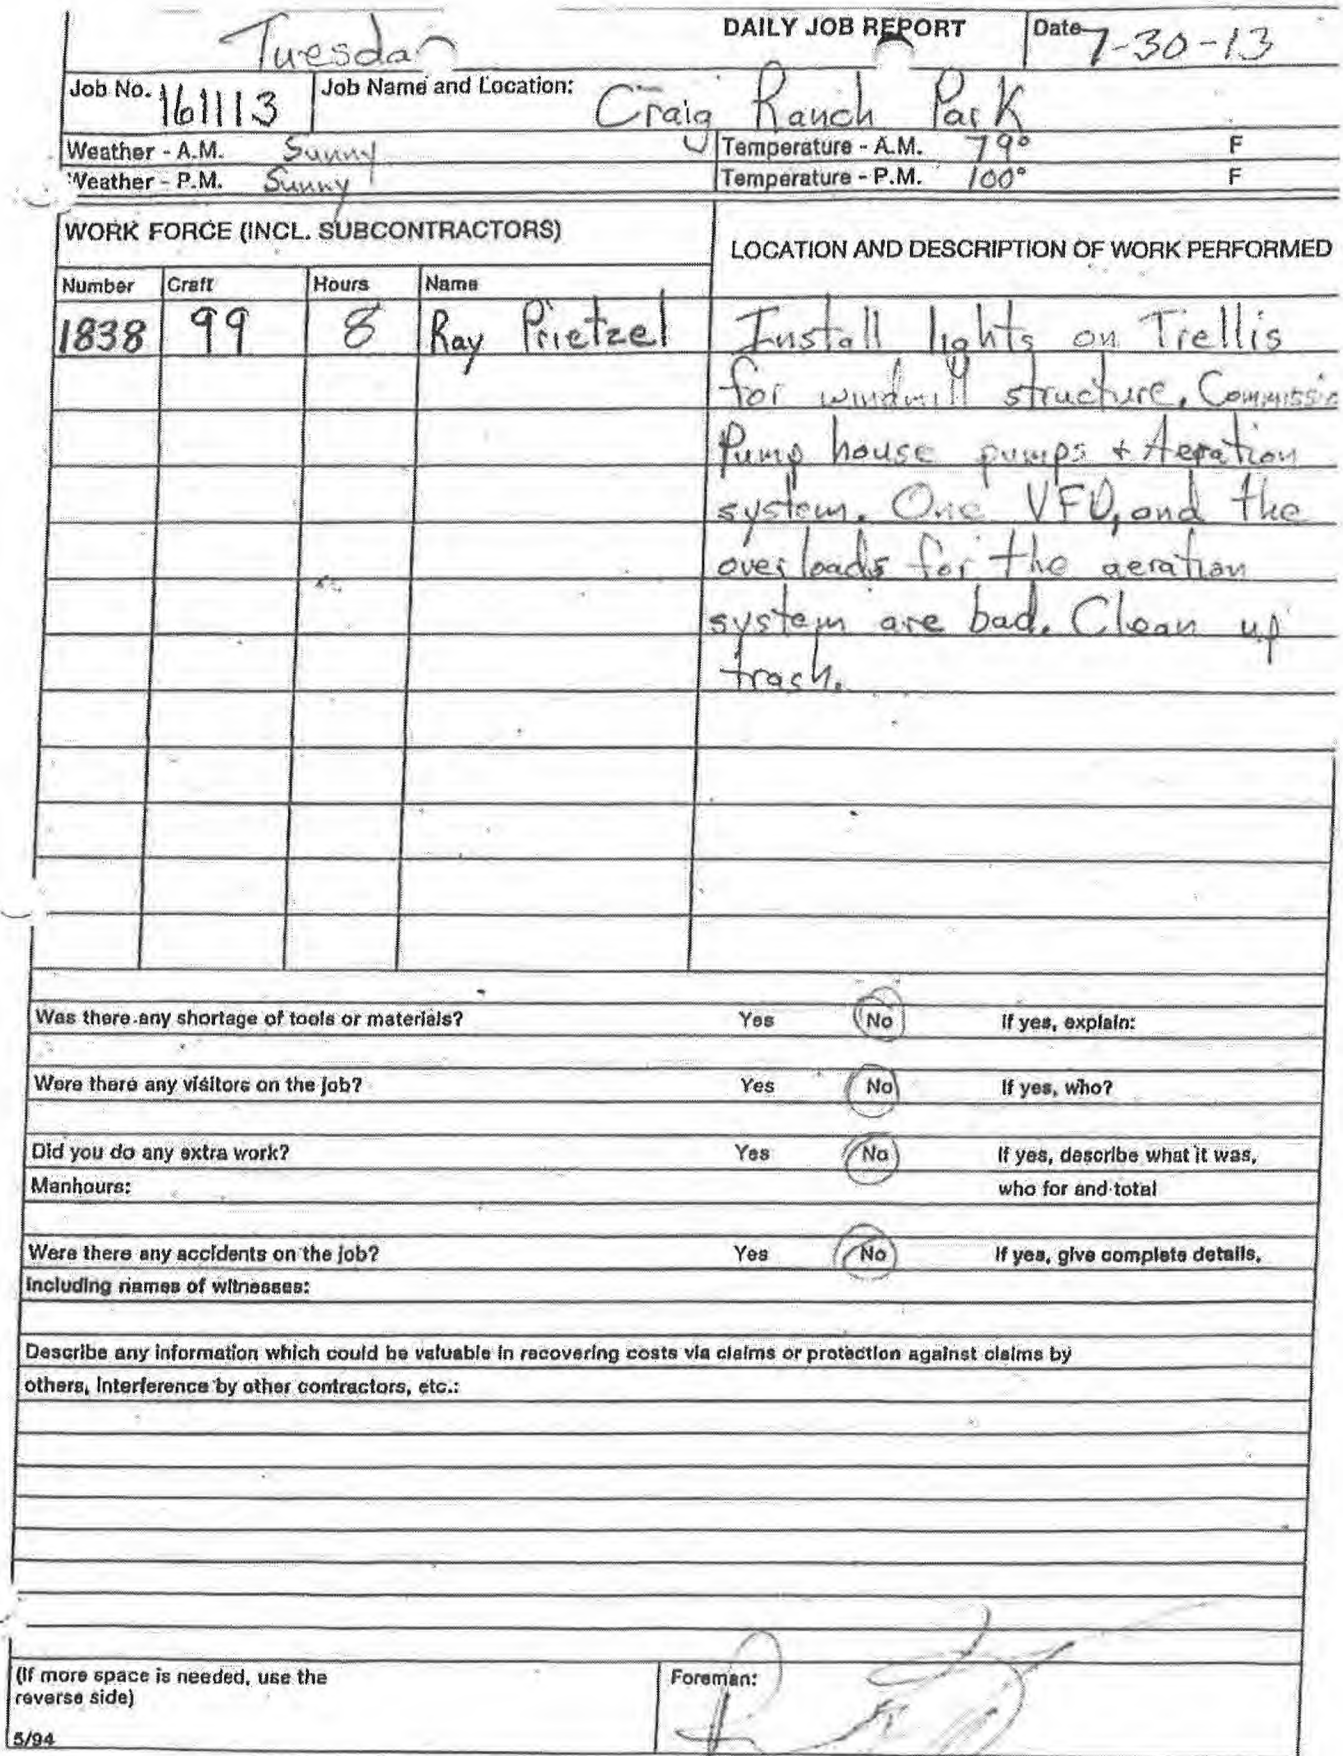 DAILY JOB REPORT Date 7-30-13
Tuesday
Job No. 161113 Job Name and Location: Craig Ranch Park
Weather - A.M. Sunny Temperature - A.M. 79° F
Weather - P.M. Sunny Temperature - P.M. 100° F
WORK FORCE (INCL. SUBCONTRACTORS) LOCATION AND DESCRIPTION OF WORK PERFORMED
Number Craft Hours Name
1838 99 8 Ray Prietzel Install lights on Trellis
for windmill structure. Commissio
Pump house pumps + Aeration
system. One VFD, and the
overloads for the aeration
system are bad. Clean up
trash.
Was there any shortage of tools or materials? Yes No If yes, explain:
Were there any visitors on the job? Yes No If yes, who?
Did you do any extra work? Yes No If yes, describe what it was,
Manhours: who for and total
Were there any accidents on the job? Yes No If yes, give complete details,
including names of witnesses:
Describe any information which could be valuable in recovering costs via claims or protection against claims by
others, interference by other contractors, etc.:
(If more space is needed, use the Foreman:
reverse side)
5/94